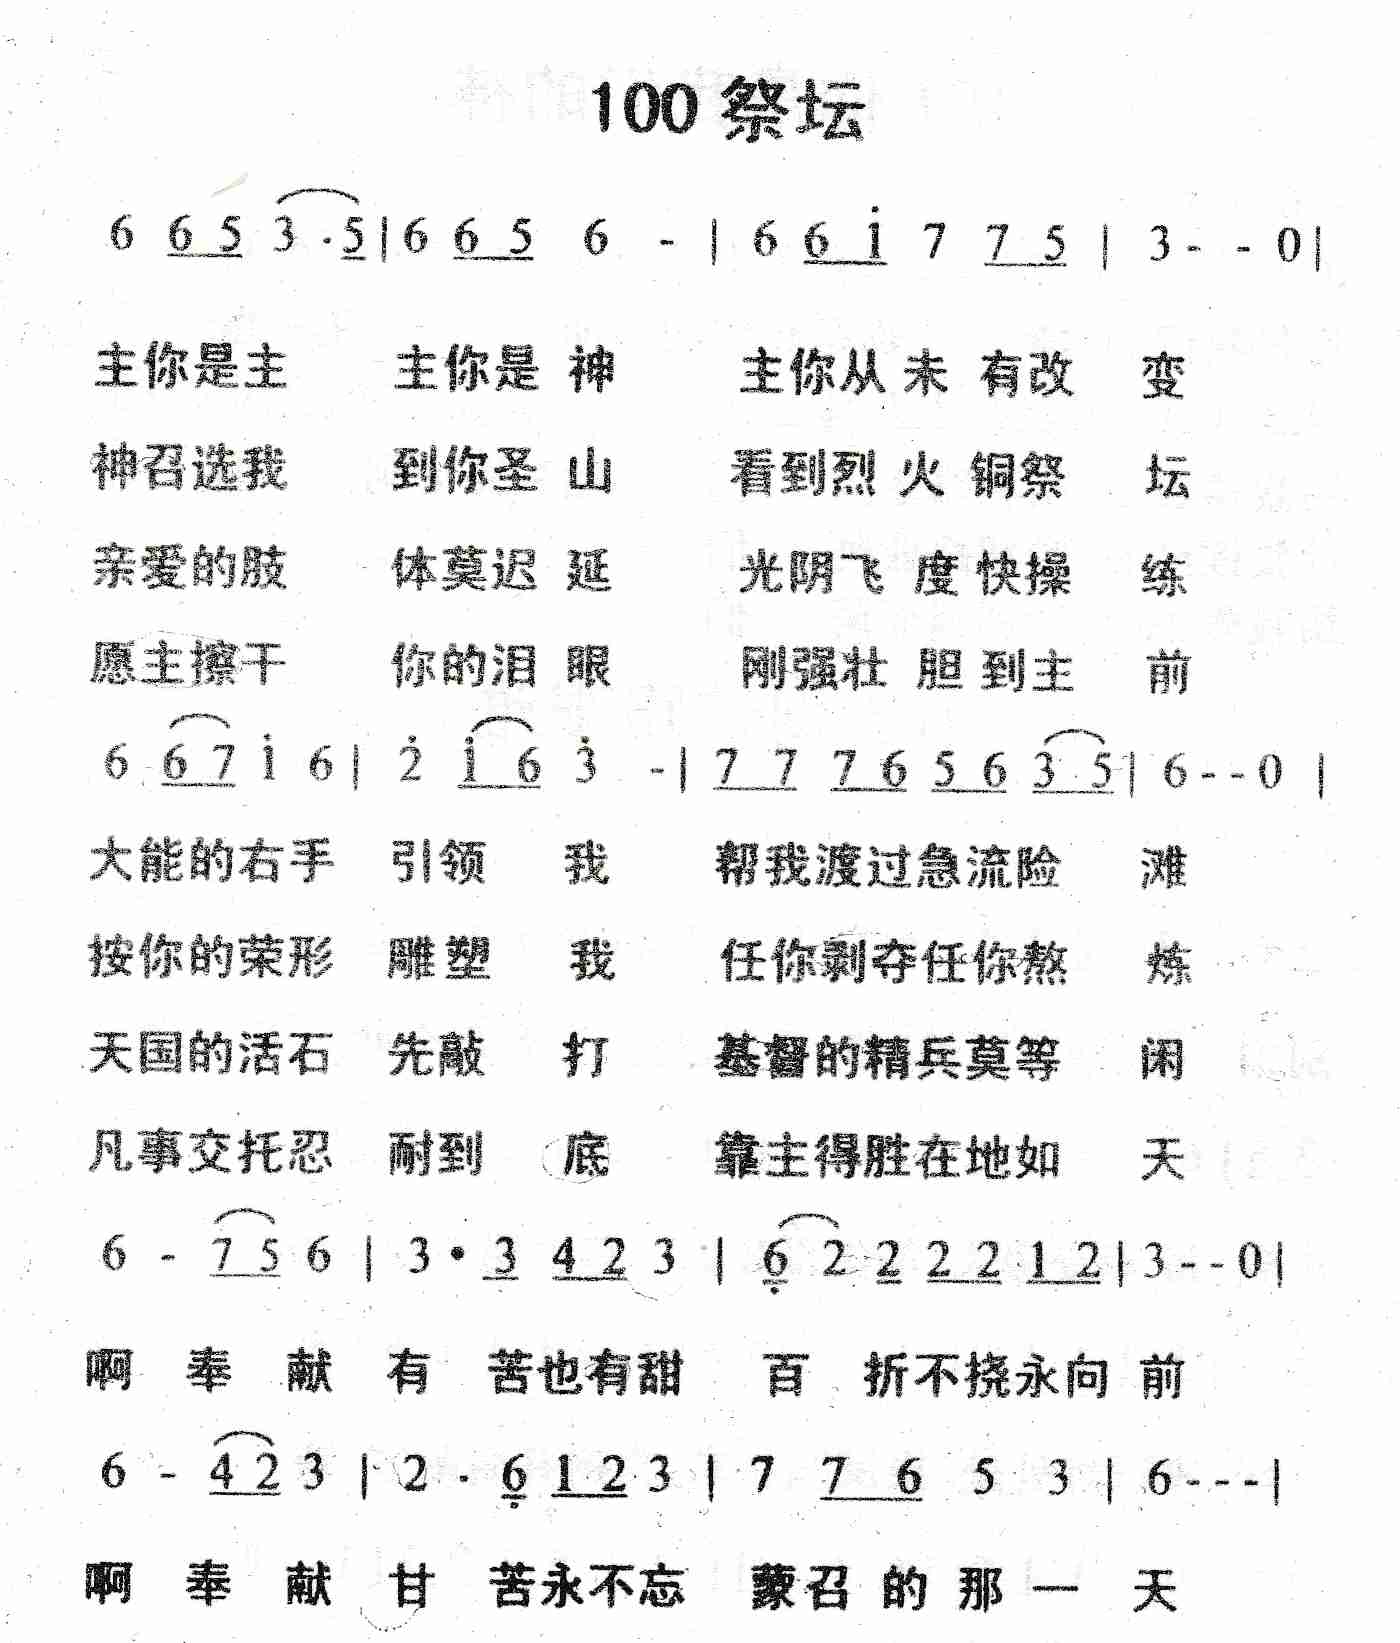 100 祭坛
6 6 5 3 · 5 | 6 6 5 6 - | 6 6 i 7 7 5 | 3 - - 0 |
主你是主 主你是 神 主你从 未 有改 变
神召选我 到你圣 山 看到烈 火 铜祭 坛
亲爱的肢 体莫迟 延 光阴飞 度 快操 练
愿主擦干 你的泪 眼 刚强壮 胆 到主 前
6 6 7 i 6 | 2̇ i 6 3̇ - | 7 7 7 6 5 6 3 5 | 6 - - 0 |
大能的右手 引领 我 帮我渡过急流险 滩
按你的荣形 雕塑 我 任你剥夺任你熬 炼
天国的活石 先敲 打 基督的精兵莫等 闲
凡事交托忍 耐到 底 靠主得胜在地如 天
6 - 7 5 6 | 3 · 3 4 2 3 | 6̣ 2 2 2 2 1 2 | 3 - - 0 |
啊 奉 献 有 苦也有甜 百 折不挠永向 前
6 - 4 2 3 | 2 · 6̣ 1 2 3 | 7 7 6 5 3 | 6 - - - |
啊 奉 献 甘 苦永不忘 蒙召 的 那 一 天